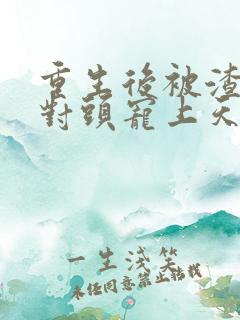 重生後被渣
對頭寵上天
一生淺笑
未經同意禁止轉載